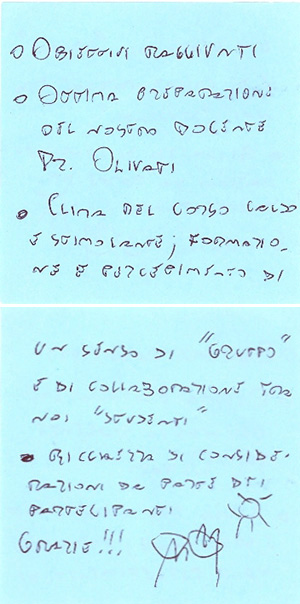 o Obiettivi raggiunti
o Ottima preparazione
del nostro docente
Dr. Olivati
• Clima del corso caldo
e stimolante; formazio-
ne e percepimento di
un senso di "gruppo"
e di collaborazione tra
noi "studenti"
• Ricchezza di conside-
razioni da parte dei
partecipanti
Grazie!!!